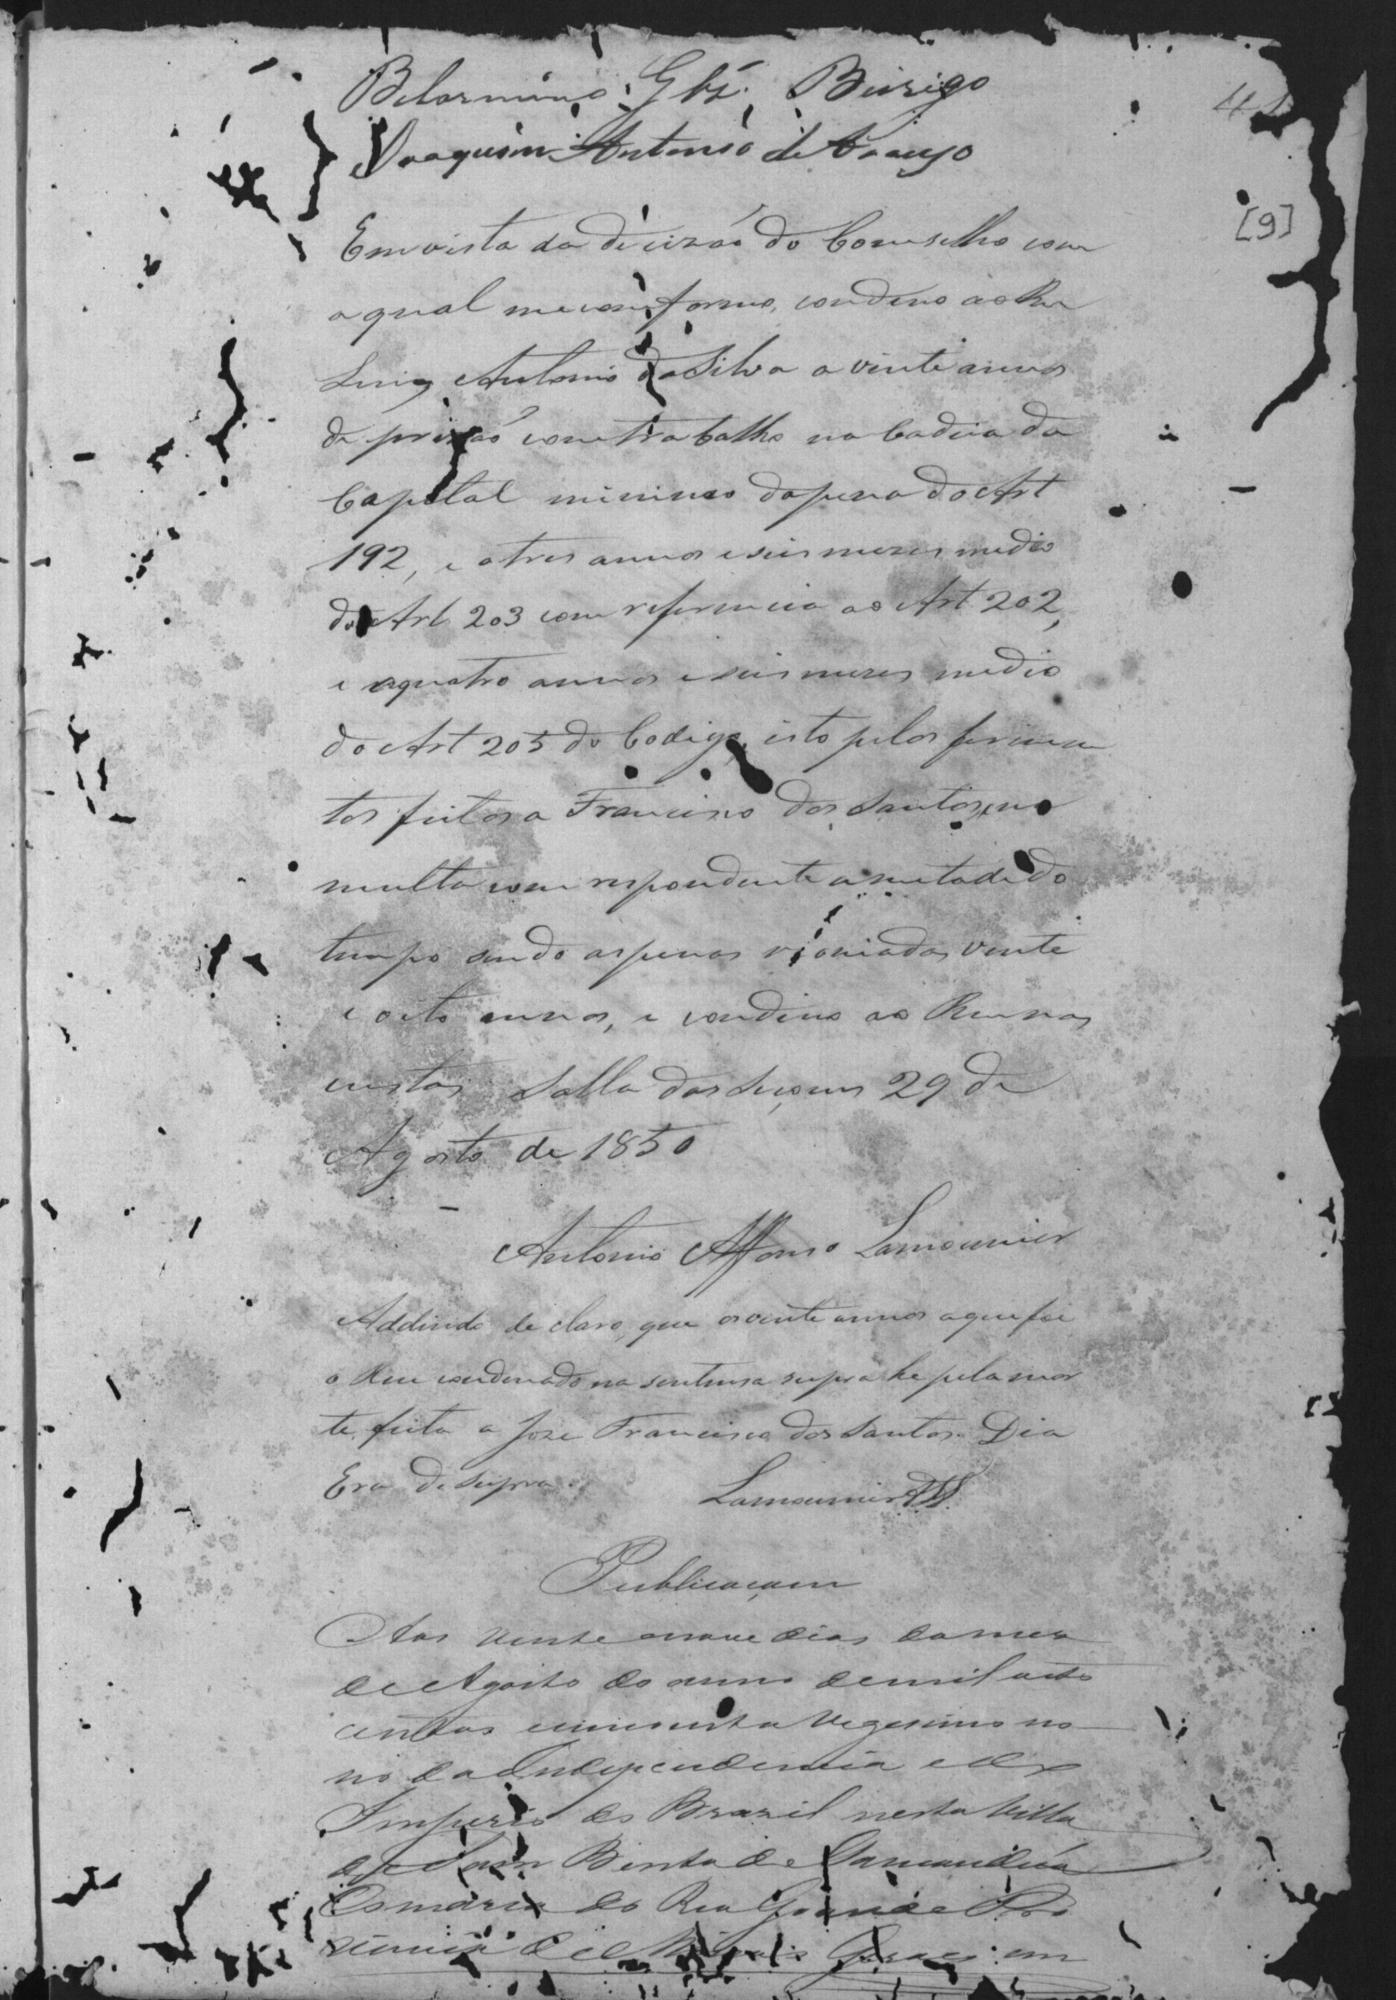 Belarmino Glz. Burigo
Joaquim Antonio de Araujo
[9]
Em vista da decizaõ do Comselho com
a qual me comformo, condeno ao Reu
Luiz Antonio da Silva a vinte annos
de prizaõ com trabalho na Cadeia da
Capital minimo da pena do Art
192, e a tres annos e seis mezes medio
do Art 203 com referencia ao Art 202,
e a quatro annos e seis mezes medio
do Art 205 do Codigo, isto pelos ferimen
tos feitos a Francisco dos Santos, na
multa correspondente a metade do
tempo sendo as penas vinte
e oito annos, e condeno ao Reu nas
custas. Salla das Seçoens 29 de
Agosto de 1850
Antonio Affonso Lamounier
Addindo declaro, que os vinte annos a que foi
o Reu condenado na sentensa supra he pela mor
te feita a Joze Francisco dos Santos. Dia
Era de supra
Lamounier
Publicaçam
Aos vinte enove dias do mez
de Agosto do anno de mil oito
centos cincoenta Vegesimo no
no da Independencia e do
Imperio do Brazil nesta Villa
de Sam Bento de Tamanduá
Comarca do Rio Grande Pro
vincia de Minas Geraes em